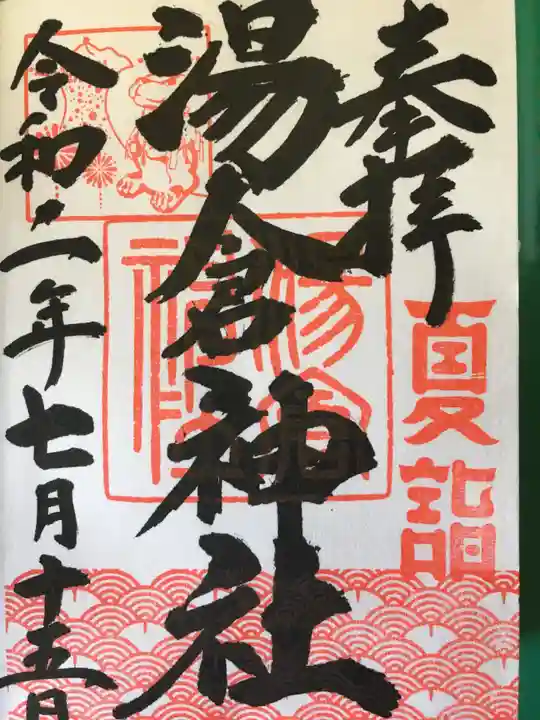 奉拝
夏詣
湯倉神社
令和二年七月十五日